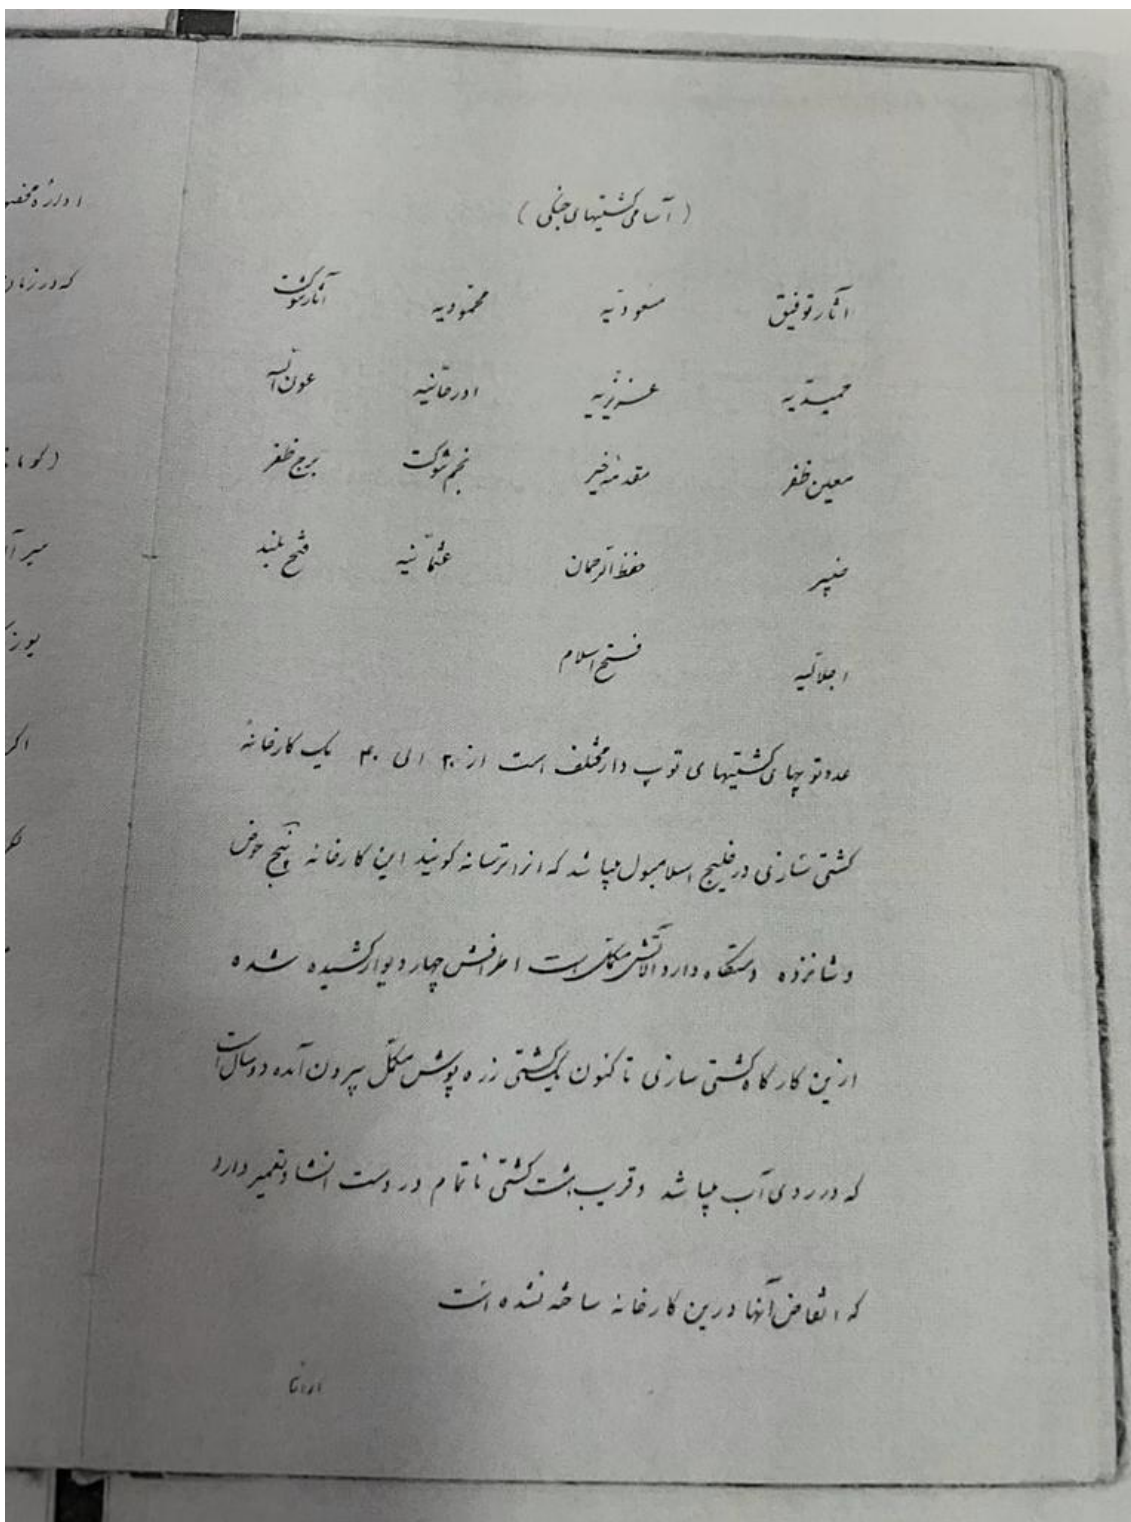 (آسامی کشتیهای جنگی)
آثار توفیق مسعودیه محمودیه آثار شوکت
حمیدیه عزیزیه اورخانیه عون الله
معین ظفر مقدمه خیر نجم شوکت برج ظفر
حفظ الرحمان عثمانیه فتح بلند
اجلالیه فتح اسلام
عدد توپهای کشتیهای توپ دار مختلف است از ۲۰ الی ۴۰ یک کارخانهٔ
کشتی سازی در خلیج اسلامبول میباشد که انرا ترسانه گویند این کارخانه پنج حوض
و شانزده دستگاه دارد آلاتش مکمل است اطرافش چهار دیوار کشیده شده
ازین کارگاه کشتی سازی تا کنون یک کشتی زره پوش مکمل بیرون آمده دو سال است
که در روی آب میباشد و قریب هشت کشتی ناتمام در دست انشا و تعمیر دارد
که آنها درین کارخانه ساخته نشده است
ادارهٔ
که در زمان
میر